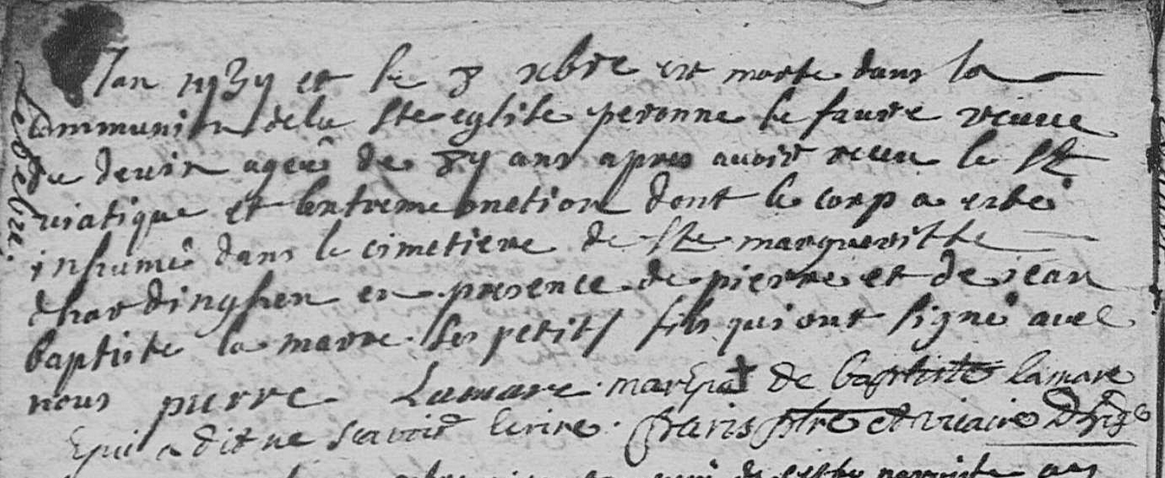 lan 1737 et le 8 xbre est morte dans la
communion de la ste eglise peronne le favre veuve
de agee de 87 ans apres avoir receu le st
viatique et lextreme onction dont le corp a este
inhumé dans le cimetiere de ste margueritte
dhardinghen en presence de pierre et de jean
baptiste la marre ses petits fils qui ont signé avec
nous pierre Lamare marque de baptiste lamare
qui a dit ne scavoir ecrire. Paris ptre et vicaire